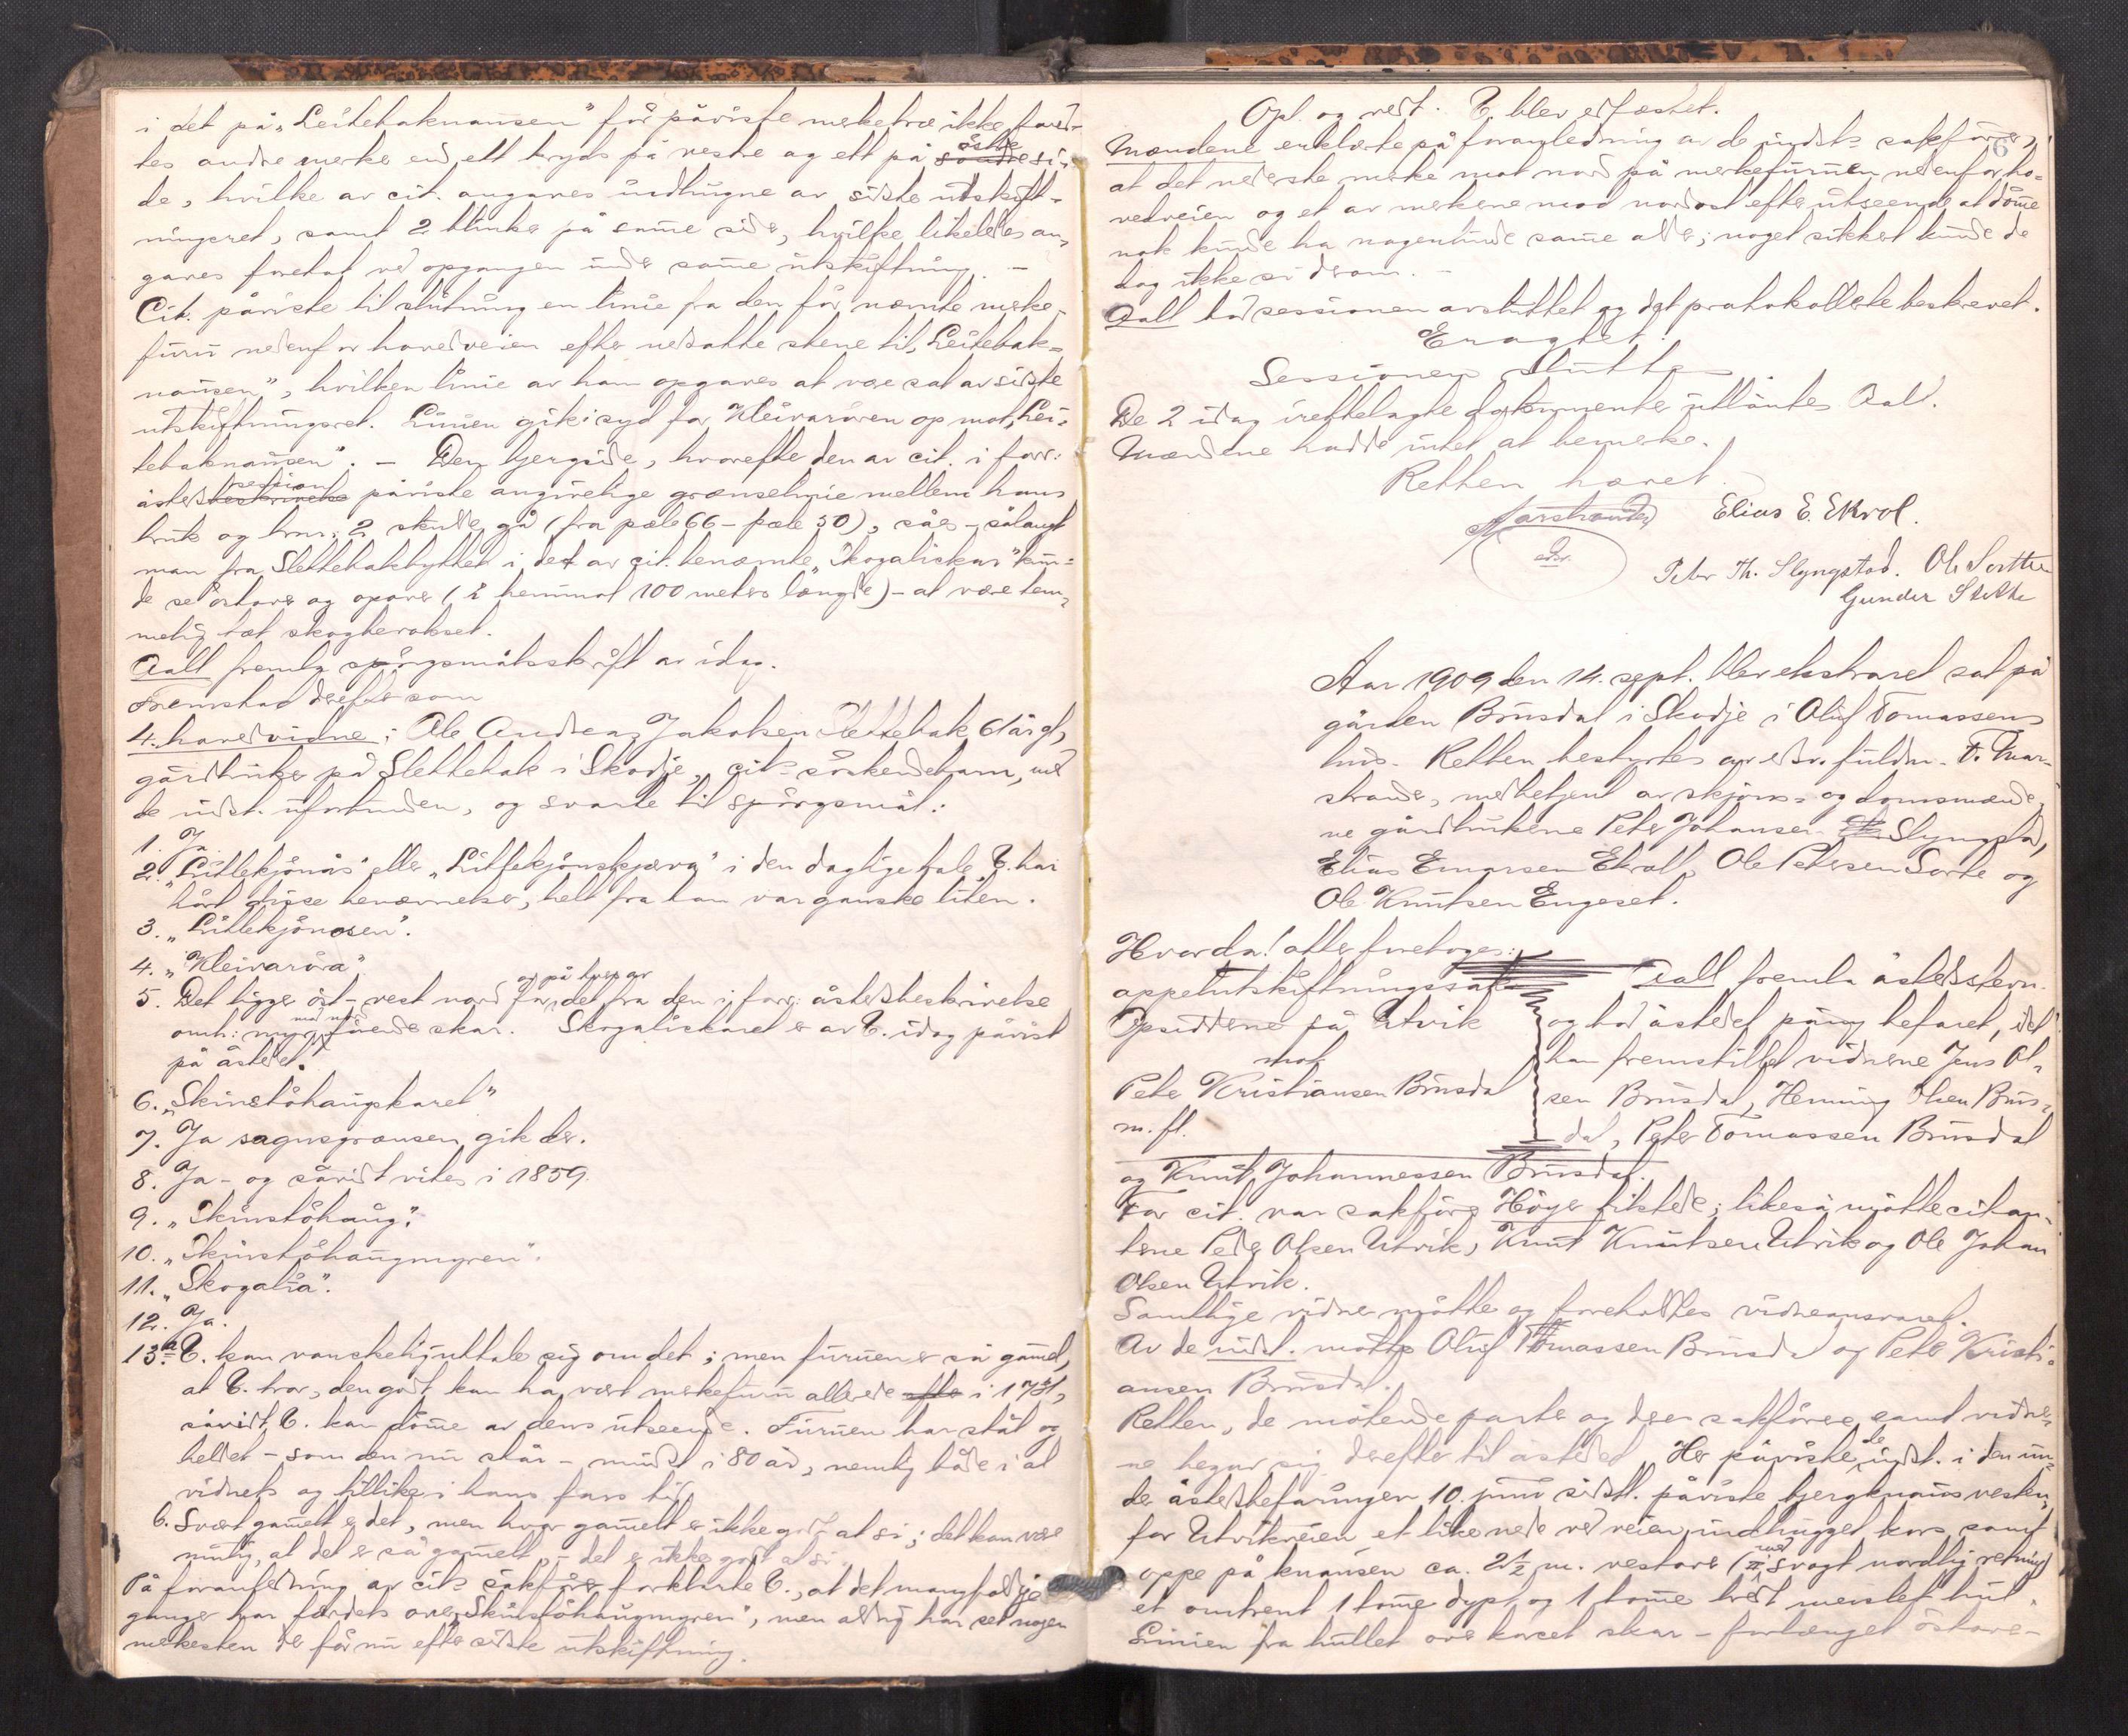 i det på „Leitebaknausen" før påviste merketræ ikke fand-
tes andre merke end ett kryds på vestre og ett på søndre østre si-
de, hvilke av cit. angaves indhugne av siste utskift-
ningsret, samt 2 blinke på same side, hvilke likeledes an-
gaves foretat ved opgangen under same utskiftning. -
Cit. påviste til slutning en linie fra den før nævnte merke-
furu nedenfor hovedveien efter nedsatte stene til „Leitebak-
nausen", hvilken linie av ham opgaves at være sat av siste
utskiftningsret. Linien gik i syd for Kleivarøren op mot „Lei-
tebaknausen". - Den bergside, hvorefter den av cit. i forr.
åstedsbeskrivelse session påviste angivelige grænselinie mellem hans
bruk og brnr. 2 skulde gå (fra pæle 66 - pæle 50), såes - sålangt
man fra Slettebakbyttet i det av cit. benævnte „Skogaliskar" kun-
de se østover og opover (i henimot 100 meters længde) - at være tem-
melig tæt skogbevokset.
Aall fremla spørgsmålsskrift av idag.
Fremstod derefter som
4. hovedvidne: Ole Andreas Jakobsen Slettebak 61 år gl,
gårdbruker på Slettebak i Skodje, cit.s søskendebarn, med
de indst. uforbunden, og svarte til spørgsmål:
1. Ja.
2. „Litlekjønås" eller „Litlekjønskjærva" i den daglige tale. V. har
hørt disse benævnelser, helt fra han var ganske liten.
3. „Litlekjønosen".
4. „Kleivarøra"
5. Det ligger øst-vest nord for og på det fra den i forr. åstedsbeskrivelse
omh: myr mod nord førende skar. Skogaliskaret er av V. idag påvist
på åstedet.
6. „Skinstøhaugskaret"
7. Ja sagnsgrænsen gik der.
8. Ja - og såvidt vites i 1859.
9. „Skinstøhaug".
10. „Skinstøhaugmyren".
11. „Skogalia".
12. Ja.
13. a V. kan vanskelig uttale sig om det; men furuen er så gamel,
at V. tror, den godt kan ha vært merkefuru allerede efter i
såvidt V. kan døme av dens utseende. Furuen har stått og
heldet - som den nu står - mindst i 80 år, nemlig både i al
vidnets og tillike i hans fars tid.
b. Svært gamelt er det, men hvor gamelt er ikke godt at si; det kan være
mulig, at det er så gamelt, - det er ikke godt at si.
På foranledning av cit.s sakfører forklarte V., at det mangfoldige
ganger har færdets over „Skinstøhaugmyren", men aldrig har set nogen
merkesten der før nu efter siste utskiftning.
Opl. og vedt. V. blev edfæstet.
6
Mændene erklærte på foranledning av de indst.s sakfører,
at det nederste merke mot nord på merkefuruen nedenfor ho-
vedveien og et av merkene mod nordost efter utseende at døme
nok kunde ha nogenlunde same alder; noget sikkert kunde de
dog ikke si derom. -
Aall bad sessionen avsluttet og det protokollerte beskrevet.
Eragtet:
Sessionen sluttes
De 2 idag irettelagte dokumenter utlåntes Aall.
Mændene hadde intet at bemerke.
Retten hævet.
Marstrander Elias E. Ekrol.
edsv.
Peter Th. Slyngstad. Ole Sortte
Gunder Stette
Aar 1909 den 14. sept. blev ekstraret sat på
gården Brusdal i Skodje i Oluf Tomassens
hus. Retten bestyrtes av edsv. fuldm. F. Mar-
strander, medbetjent av skjøns- og domsmænde-
ne gårdbrukerne Peter Johansen Slyngstad,
Elias Emarsen Ekroll, Ole Petersen Sorte og
Ole Knutsen Engeset.
Hvorda! atter foretoges:
appelutskiftningssak
Opsidderne på Utvik
mot
Peter Kristiansen Brusdal
m. fl.
Aall fremla åstedsstevn.
og bad åstedet påny befaret, idet
han fremstillet vidnene Jens Ol-
sen Brusdal, Henning Olsen Brus-
dal, Peter Tomassen Brusdal
og Knut Johannessen Brusdal.
For cit. var sakfører Høyer tilstede; likeså møtte citan-
tene Peder Olsen Utvik, Knut Knutsen Utvik og Ole Johan
Olsen Utvik.
Samtlige vidner møtte og foreholdtes vidneansvaret.
Av de indst. møtte Oluf Tomassen Brusdal og Peter Kristi-
ansen Brusdal.
Retten, de møtende parter og deres sakførere samt vidner-
ne begav sig derefter til åstedet. Her påviste de indst. i den un-
der åstedsbefaringen 10. juni sistl. påviste bjergknaus vesten-
for Utvikveien et like nede ved veien indhugget kors samt
oppe på knausen ca. 2½ m. vestover (i med svagt nordlig retning)
et omtrent 1 tome dypt og 1 tome bredt meislet hul.
Linien fra hullet over korset skar - forlænget østover -